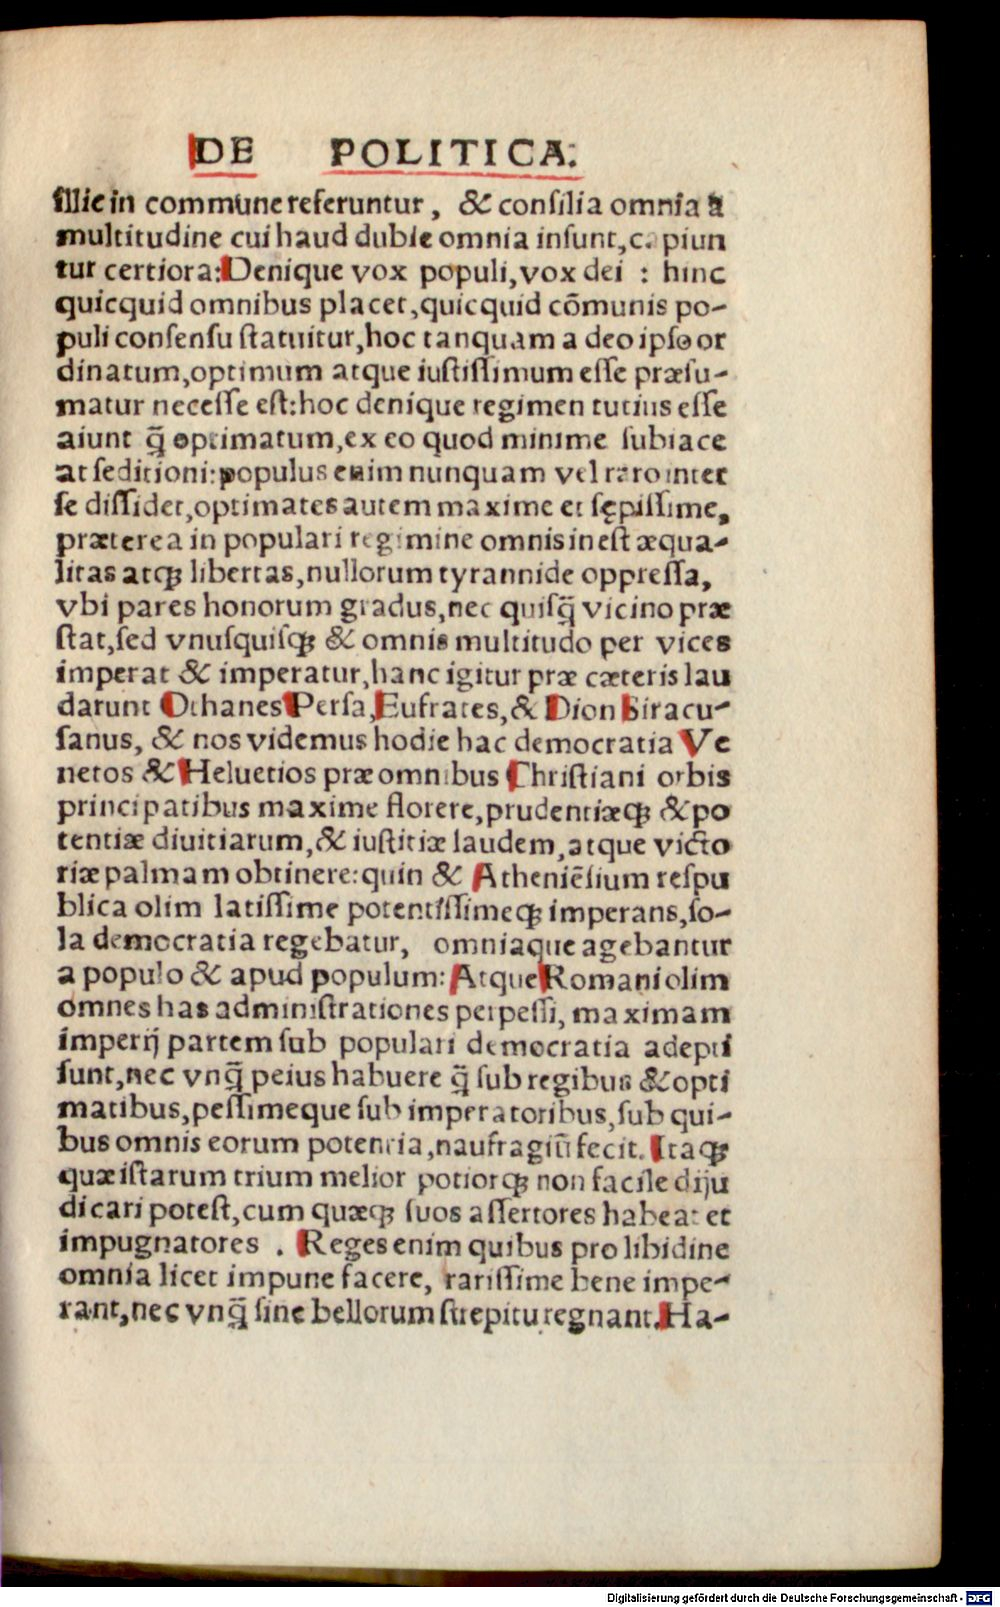 DE POLITICA.
illic in commune referuntur, & consilia omnia a
multitudine cui haud dubie omnia insunt, capiun
tur certiora: Denique vox populi, vox dei : hinc
quicquid omnibus placet, quicquid cõmunis po-
puli consensu statuitur, hoc tanquam a deo ipso or
dinatum, optimum atque iustissimum esse præsu-
matur necesse est: hoc denique regimen tutius esse
aiunt q̃ optimatum, ex eo quod minime subiace
at seditioni: populus enim nunquam vel raro inter
se dissidet, optimates autem maxime et sępissime,
præterea in populari regimine omnis inest æqua-
litas atqꝫ libertas, nullorum tyrannide oppressa,
vbi pares honorum gradus, nec quisq̃ vicino præ
stat, sed vnusquisqꝫ & omnis multitudo per vices
imperat & imperatur, hanc igitur præ cæteris lau
darunt Othanes Persa, Eufrates, & Dion Siracu-
sanus, & nos videmus hodie hac democratia Ve
netos & Heluetios præ omnibus Christiani orbis
principatibus maxime florere, prudentiæqꝫ & po
tentiæ diuitiarum, & iustitiæ laudem, atque victo
riæ palmam obtinere: quin & Atheniẽsium respu
blica olim latissime potentissimeqꝫ imperans, so-
la democratia regebatur, omniaque agebantur
a populo & apud populum: Atque Romani olim
omnes has administrationes perpessi, maximam
imperij partem sub populari democratia adepti
sunt, nec vnq̃ peius habuere q̃ sub regibus & opti
matibus, pessimeque sub imperatoribus, sub qui-
bus omnis eorum potentia, naufragiũ fecit. Itaqꝫ
quæ istarum trium melior potiorqꝫ non facile diju
dicari potest, cum quæqꝫ suos assertores habeat et
impugnatores . Reges enim quibus pro libidine
omnia licet impune facere, rarissime bene impe-
rant, nec vnq̃ sine bellorum strepitu regnant. Ha-
Digitalisierung gefördert durch die Deutsche Forschungsgemeinschaft - DFG